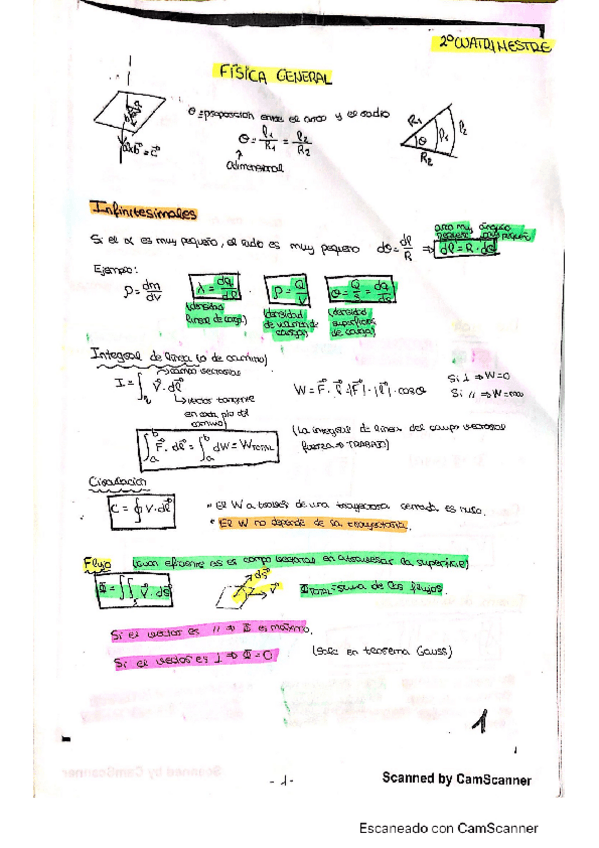 2º CUATRIMESTRE
FÍSICA GENERAL
a×b = c
θ = proporción entre el arco y el radio
θ = l₁/R₁ = l₂/R₂
Adimensional
R₁ θ l₁ l₂
R₂
Infinitesimales
Si el α es muy pequeño, el radio es muy pequeño dθ = dl/R ⇒ dl = R · dθ
arco muy pequeño ángulo muy pequeño
Ejemplo:
ρ = dm/dV λ = dQ/dl · ρ = Q/V σ = Q/S = dQ/dS
(densidad lineal de carga) (densidad de volumen de carga) (densidad superficial de carga)
Integral de línea (o de camino)
→ campo vectorial
I = ∫ V · dl
→ vector tangente en cada pto del camino
W = F · l = |F| · |l| · cosθ
Si ⊥ ⇒ W=0
Si // ⇒ W=max
∫ₐᵇ F · dl = ∫ₐᵇ dW = W TOTAL
(La integral de línea del campo vectorial fuerza ⇒ TRABAJO)
Circulación
C = ∮ V · dl
• El W a través de una trayectoria cerrada es nulo.
• El W no depende de la trayectoria.
Flujo (cuan eficiente es el campo vectorial en atravesar la superficie)
Φ = ∫∫ₛ V · dS
dS
V
Φ TOTAL = suma de los flujos.
Si el vector es // ⇒ Φ es máximo.
Si el vector es ⊥ ⇒ Φ = 0. (Sale en teorema Gauss)
1
- 1 -
Scanned by CamScanner
Escaneado con CamScanner